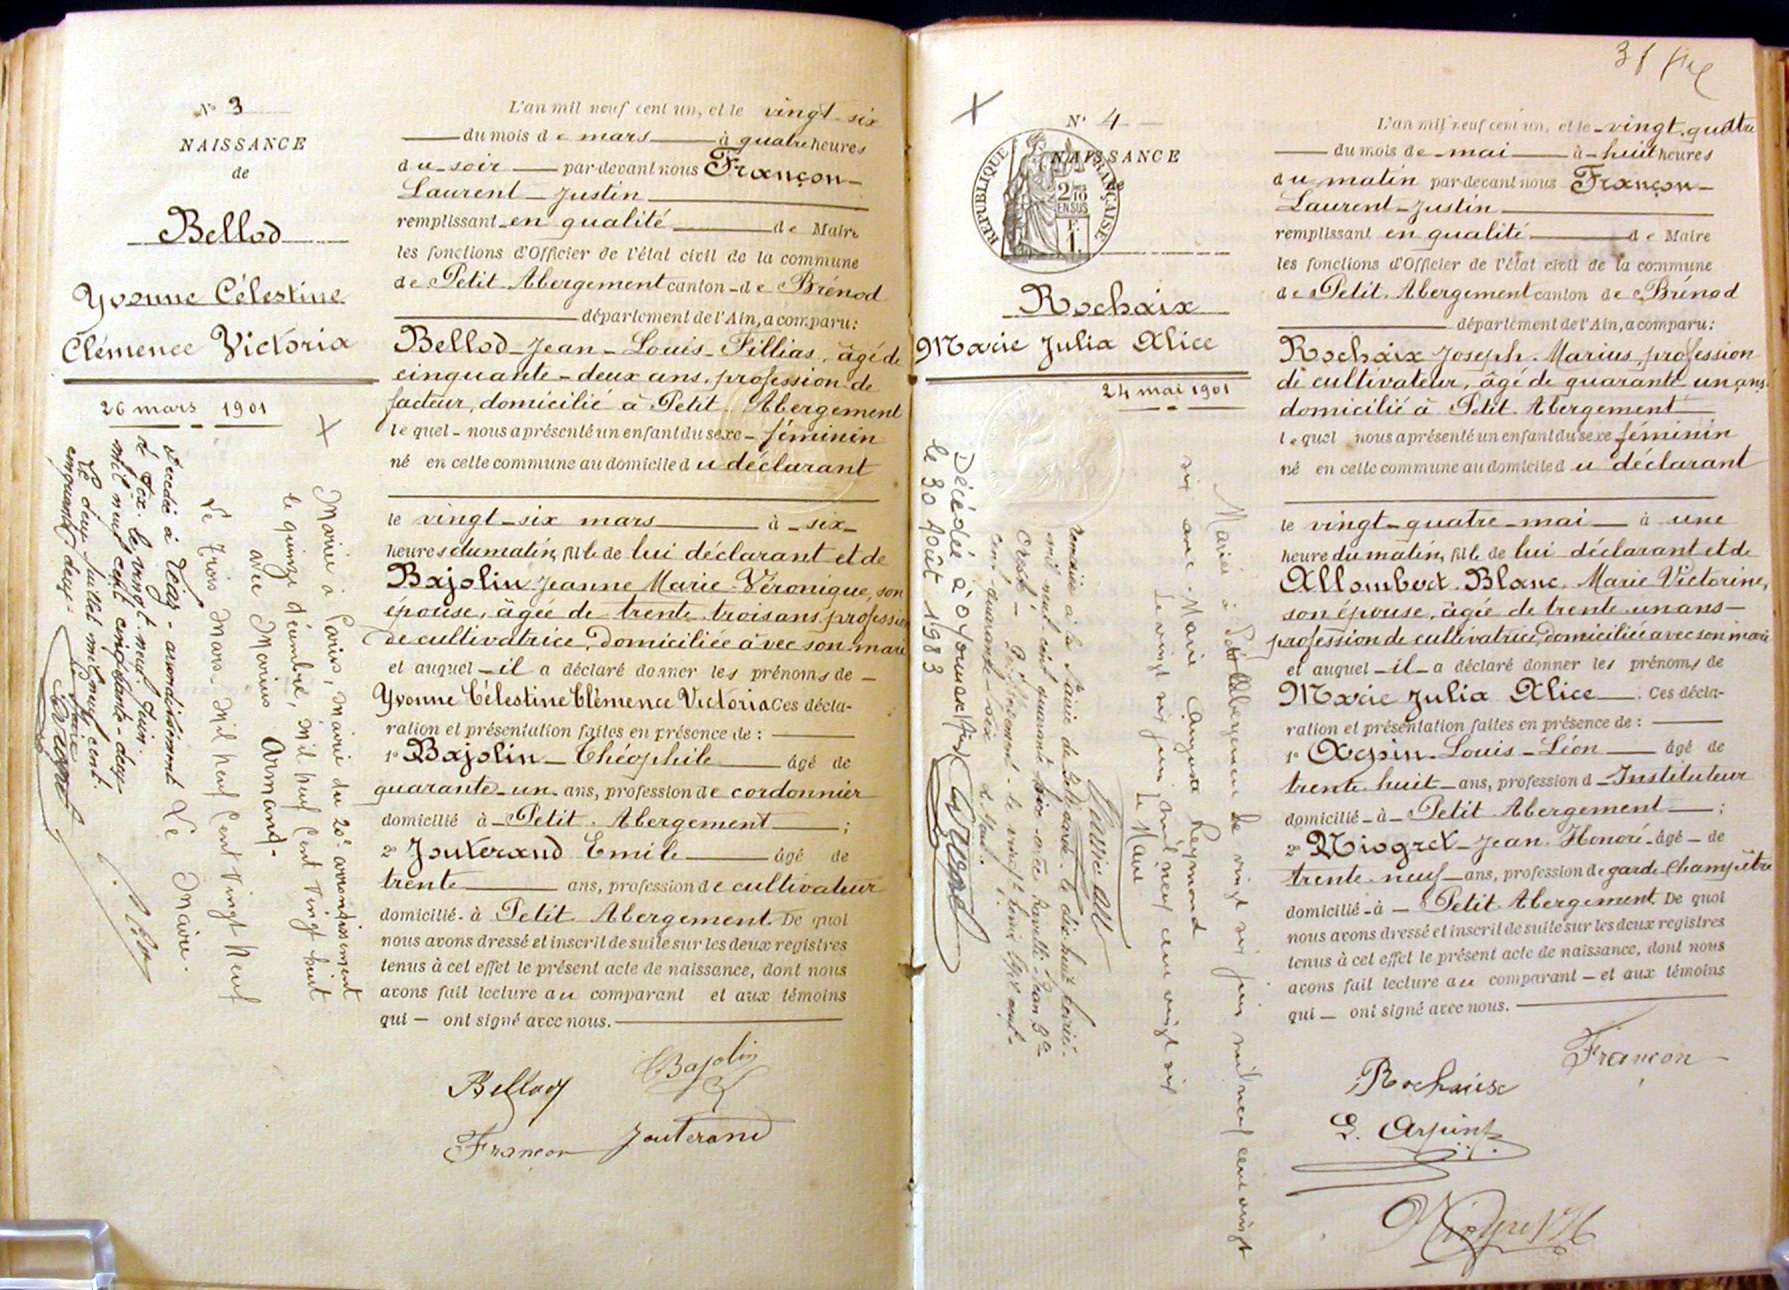 N° 3
NAISSANCE
de
Bellod
Yvonne Célestine
Clémence Victoria
26 mars 1901
Mariée à Paris, mairie du 20e arrondissement
le quinze décembre, mil neuf Cent Vingt huit
avec Marius Armand.
Le trois Mars Mil neuf Cent Vingt Neuf
Le Maire.
Décédée à - arrondissement
de Gex - le vingt neuf juin
mil neuf cent cinquante-deux
Le deux juillet mil neuf cent
cinquante deux -
Le Maire
L'an mil neuf cent un, et le vingt-six
du mois de mars à quatre heures
du soir par-devant nous Françon
Laurent-Justin
remplissant en qualité de Maire
les fonctions d'Officier de l'état civil de la commune
de Petit-Abergement canton de Brénod
département de l'Ain, a comparu:
Bellod-Jean-Louis-Fillias, âgé de
cinquante-deux ans, profession de
facteur, domicilié à Petit-Abergement
lequel nous a présenté un enfant du sexe féminin
né en cette commune au domicile du déclarant
le vingt-six mars à six
heures du matin, fille de lui déclarant et de
Bajolin Jeanne Marie-Véronique, son
épouse, âgée de trente-trois ans, profession
de cultivatrice, domiciliée avec son mari
et auquel il a déclaré donner les prénoms de
Yvonne Célestine Clémence Victoria Ces décla-
ration et présentation faites en présence de :
1° Bajolin Théophile âgé de
quarante-un ans, profession de cordonnier
domicilié à Petit-Abergement ;
2° Jouterand Emile âgé de
trente ans, profession de cultivateur
domicilié à Petit Abergement De quoi
nous avons dressé et inscrit de suite sur les deux registres
tenus à cet effet le présent acte de naissance, dont nous
avons fait lecture au comparant et aux témoins
qui ont signé avec nous.
Bellod Bajolin
Françon Jouterand
N° 4
NAISSANCE
de
RÉPUBLIQUE FRANÇAISE
EN SUS
Rochaix
Marie Julia Alice
24 mai 1901
Mariée à Petit Abergement le vingt six juin mil neuf cent vingt
six avec Marie Auguste Reymond
Le vingt six juin mil neuf cent vingt six
Le Maire
Remariée à la Mairie de Bellegarde le dix huit février
mil neuf cent quarante six avec
cent quarante-six
Décédée à Oyonnax (Ain)
le 30 Août 1983
L'an mil neuf cent un, et le vingt-quatre
du mois de mai à huit heures
du matin par-devant nous Françon
Laurent-Justin
remplissant en qualité de Maire
les fonctions d'Officier de l'état civil de la commune
de Petit-Abergement canton de Brénod
département de l'Ain, a comparu:
Rochaix Joseph-Marius, profession
de cultivateur, âgé de quarante un ans
domicilié à Petit Abergement
lequel nous a présenté un enfant du sexe féminin
né en cette commune au domicile du déclarant
le vingt-quatre-mai à une
heure du matin, fille de lui déclarant et de
Allombert-Blanc Marie Victorine,
son épouse, âgée de trente-un ans
profession de cultivatrice, domiciliée avec son mari
et auquel il a déclaré donner les prénoms de
Marie Julia Alice Ces décla-
ration et présentation faites en présence de :
1° Arpin-Louis-Léon âgé de
trente huit ans, profession d Instituteur
domicilié à Petit Abergement ;
2° Niogret-Jean Honoré âgé de
trente-neuf ans, profession de garde-champêtre
domicilié à Petit Abergement De quoi
nous avons dressé et inscrit de suite sur les deux registres
tenus à cet effet le présent acte de naissance, dont nous
avons fait lecture au comparant et aux témoins
qui ont signé avec nous.
Rochaix Françon
L. Arpin
Niogret JH